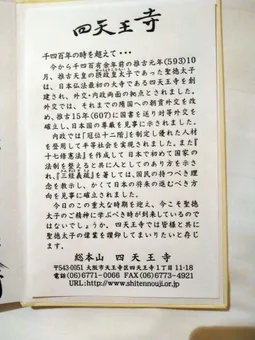 四天王寺
千四百年の時を超えて・・・
今から千四百有余年前の推古元年(593)10
月、推古天皇の摂政皇太子であった聖徳太
子は、日本仏法最初の大寺である四天王寺を創
建され、外交・内政両面の拠点とされました。
外交では、それまでの隋国への朝貢外交を改
め、推古15年(607)に国書を送り対等外交を
確立し、日本国の尊厳を見事に示されました。
内政では『冠位十二階』を制定し優れた人材
を登用して平等社会を実現されました。また『十
七条憲法』を作成して日本で初めて国家の
法制を整えると共に人としてのあり方を示さ
れ、『三経義疏』を著しては、国民の持つべき理
念を教示し、かくて日本の将来の進むべき方
向を見事に確立されました。
今日のこの重大な時期を迎え、今こそ聖徳
太子のご精神に学ぶべき時が到来しているので
はないでしょうか。四天王寺では皆様と共に
聖徳太子の偉業を讃仰してまいりたいと存じ
ます。
総本山 四天王寺
〒543-0051 大阪市天王寺区四天王寺1丁目11-18
電話(06)6771-0066 FAX(06)6773-4921
URL:http://www.shitennouji.or.jp